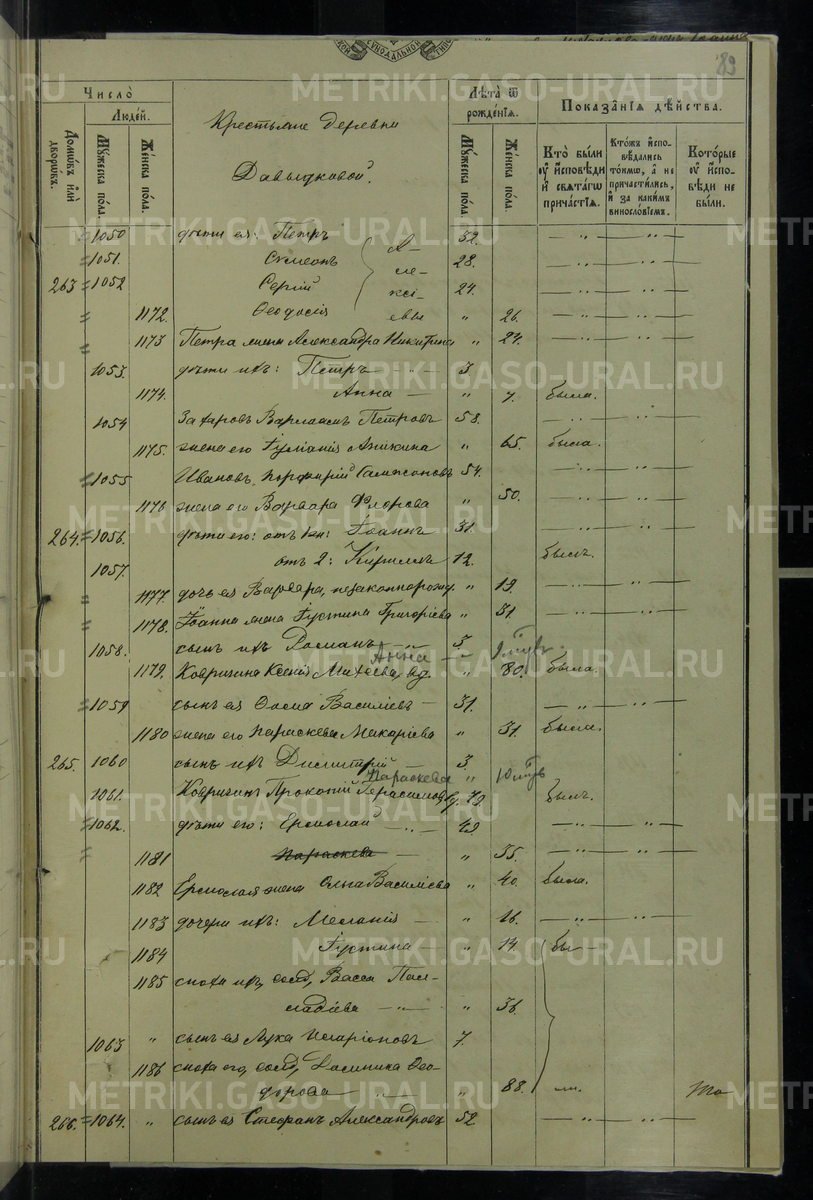 89
Число̀
Людей.
Домѡвъ или дворѡвъ.
Мꙋжеска пола.
Женска пола.
Крестьяне деревни
Давыдковой.
Лѣта ѿ рожденїѧ.
Мꙋжеска пола.
Женска пола.
Показанїѧ дѣйства.
Кто были ꙋ исповѣди и свѧтагѡ причастїѧ.
Ктожъ исповѣдались токмѡ, а не причастились, и за какимъ винословїемъ.
Которые ꙋ исповѣди не были.
1050 дѣти ея: Петръ 32.
1051. Сѵмеонъ 28.
263 1052 Сергій 24.
Алексіевы
1172. Ѳеодосія " 26.
1173 Петра жена Александра Никитина " 24.
1053. дѣти ихъ: Петръ 3
1174. Анна " 7. была.
1054 Захаровъ Варлаамъ Петровъ 58.
1175. жена его Іуліанія Аникина " 65. была.
1055 Ивановъ Порфирій Сампсоновъ 54.
1176 жена его Варвара Флорова " 50.
264. 1056. дѣти его: отъ 1й: Іоаннъ 31.
1057. отъ 2: Кириллъ 12. былъ.
1177. дочь ея Варвара, незаконнорожд. " 19.
1178. Іоанна жена Іустина Григоріева " 31.
1058. сынъ ихъ Романъ 3
Анна
1179. Ковригина Ксенія Михеева, вд. " 80. была.
1059 сынъ ея Ѳома Василіевъ 31.
1180 жена его Параскева Макаріева " 31. была.
265. 1060 сынъ ихъ Димитрій 3
Параскева "
1061. Ковригинъ Прокопій Герасимовъ 72. былъ.
1062. дѣти его: Ермолай 42
1181 Параскева " 35.
1182 Ермолая жена Ольга Василіева " 40. была.
1183 дочери ихъ: Меланія " 16.
1184 Іустина " 14. бы-
1185 сноха ихъ, солд, Васса Пал-
ладіева " 36.
1063 " сынъ ея Лука Иларіоновъ 7.
1186 сноха его, солд, Домника Ѳео-
дорова " 88. ли.
266. 1064. " сынъ ея Стефанъ Александровъ 52
METRIKI.GASO-URAL.RU